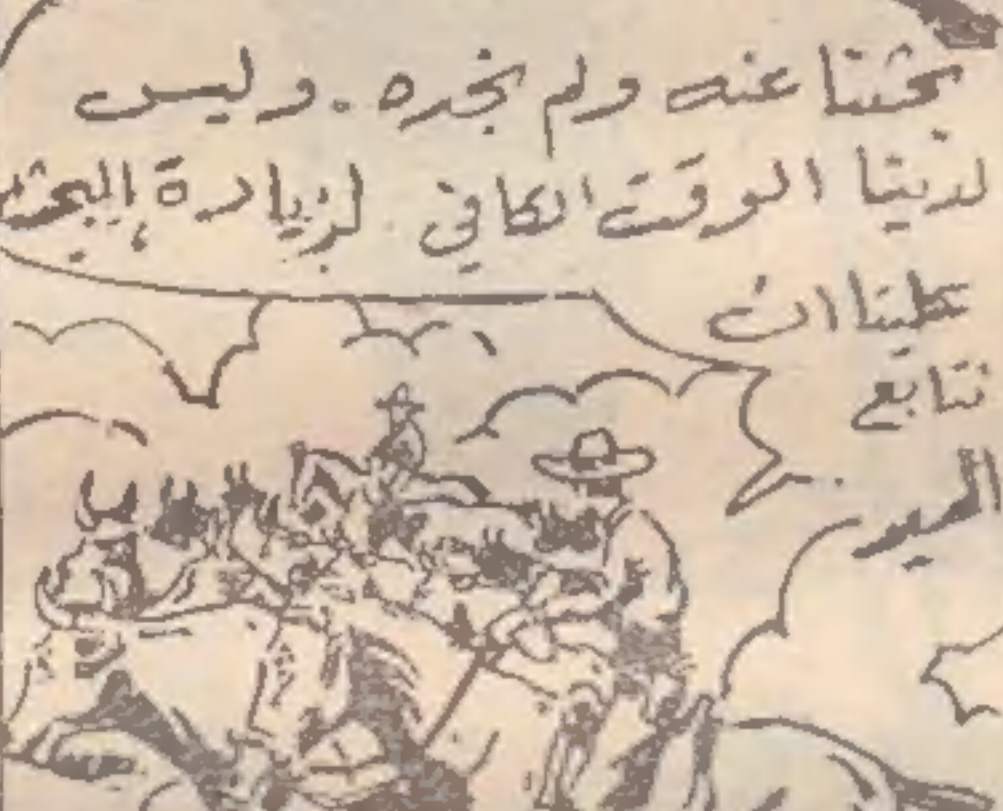 بحثنا عنه ولم نجده . وليس
لدينا الوقت الكافي لزيادة البحث
علينا ان
نتابع
السير